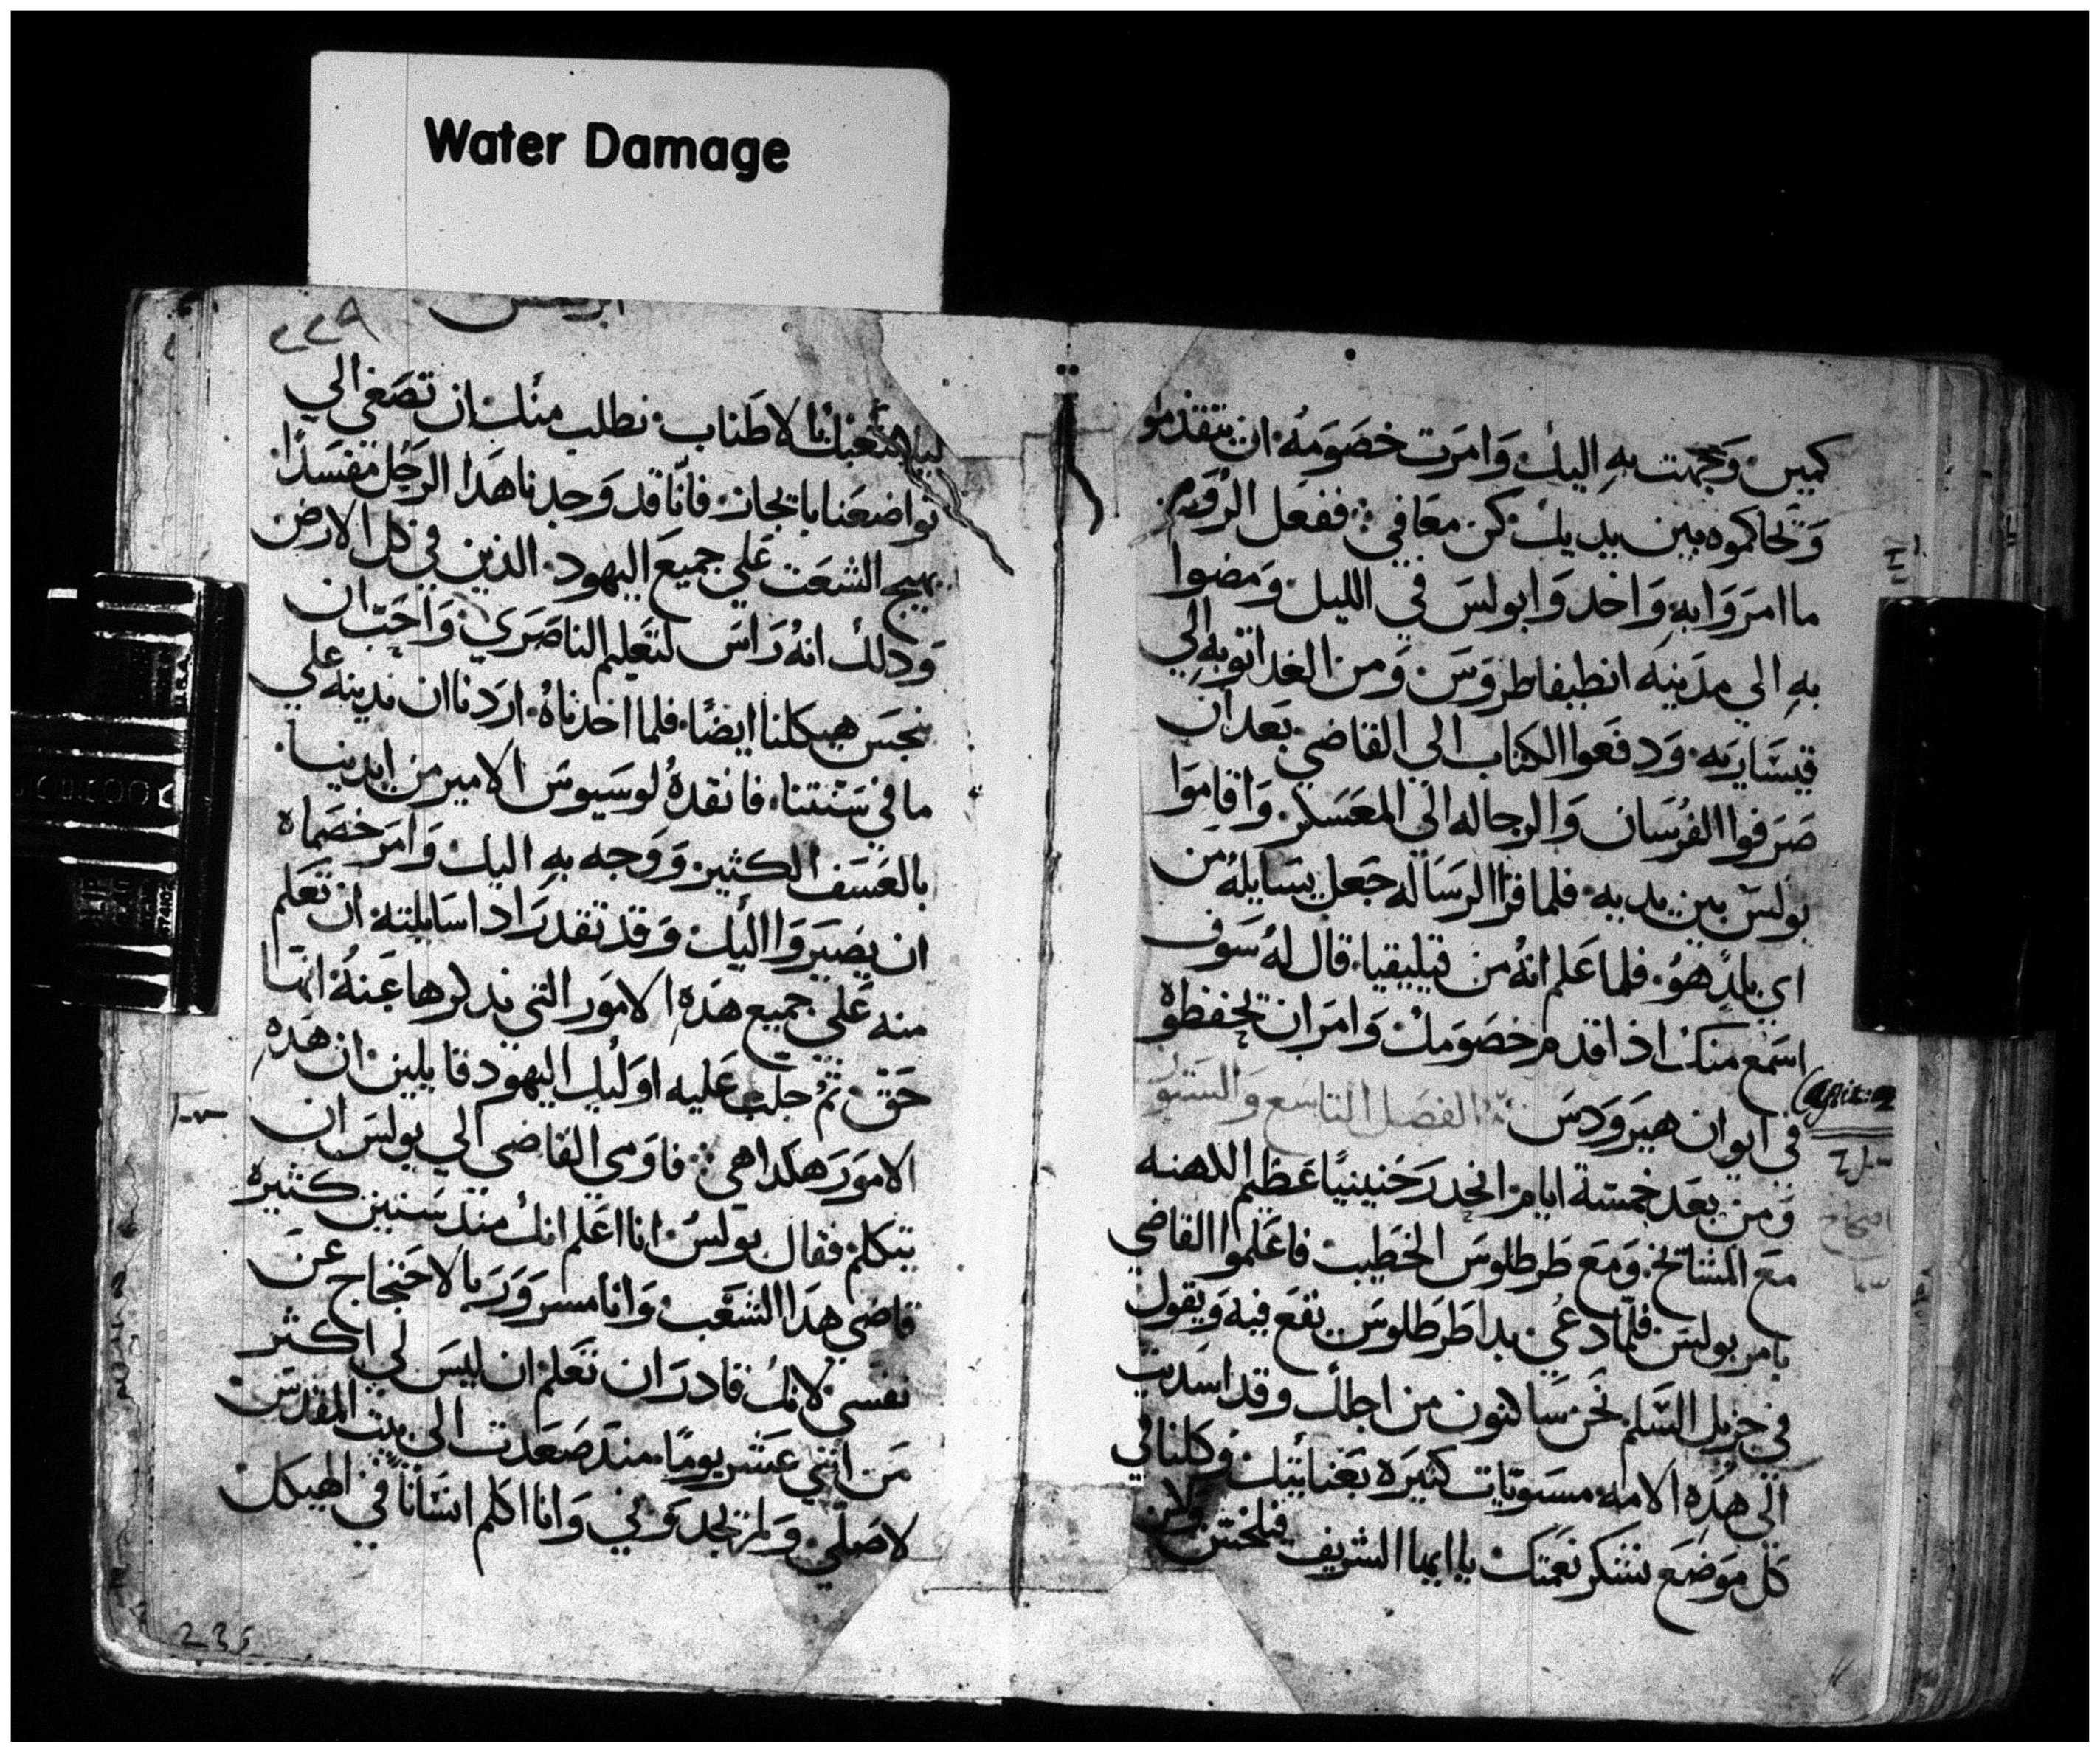 Water Damage
كمين وَوجهت بهِ اليك وَامرَت خصَومَهُ ان يتقدموا
وَتحاكموه بين يديك كن معَافي ففعل الرُوَم
ما امرَوَا بهِ وَاخد وَا بولسَ في الليل وَمضوا
بهِ الي مدَينيَه انطيفاطروَسَ وَمن الغد اتوَبهِ الي
قيسَاريَه وَدفعَوا الكتاب الي القاضي بعَد ان
صَرَفوا الفرُسَان وَالرجاله الي المعَسَكر وَاقاموَا
بولسَ بين يديه فلما قرا الرسَاله جَعل يسَايلهُ من
اي بلدٍ هوَ فلما عَلم انهُ من قيليقيا قال لهُ سَوف
اسَمع منك اذا قدم خصَومَك وَامرَ ان يحفظوهُ
في ايوان هيروَدسَ الفصَل التاسَع وَالستو
وَمن بعَد خمسَة ايام انحدرَ حَنينيًا عَظم الكهنه
معَ المشايخ وَمعَ طَرطلوسَ الخطيب فاعَلموا القاضي
بامر بولسَ فلما دعَي بدا طَرطلوسَ يقعَ فيه وَيقول
في جزيل السَلم نحَن سَاكنون من اجلك وقد اسَديت
الي هذِه الامه مسَتويَات كثيرَه بعَنايتك وَكلنا في
كل موَضع نشكر نعَمتك يا ايها الشريف فيلخسَ وَلان
٢٢٩
ابركسس
ليلا نتعَبك بالاطَناب نطلب منَك ان تصَغي الي
تواضعَنا باتجان فانّا قد وَجدنا هَدا الرَجُل مفسَدًا
يهيج الشعَت عَلي جميعَ اليهود الذين في كل الارض
وَدلك انهُ رَاسَ لتعَليم الناصَرَي وَاحَب ان
ينجسَ هيكلنا ايضًا فلما اخدناهُ ارَدنا ان ندينه عَلي
ما في سَنتنا فانقدهُ لوسَيوسَ الامير من ايدينا
بالعَسَف الكثير وَوَجه بهِ اليك وَامرَ خصَماه
ان يصَيرَوَا اليك وَقد تقدرَ ادا سَايلته ان تعَلم
منه عَلي جميع هذِه الامَور التي نذكرها عَنهُ انها
حَق ثمُ جلب عَليه اوَليك اليهود قايلين ان هَذه
الاموَرَ هكدا هي فاوَمي القاضي الي بولسَ ان
يتكلم فقال بولسَ انا اعَلم انك منذ سَنين كثيره
قاضي هَدا الشعَب وَانا مسَروَرَ بالاحَتجاج عَن
نفسَي لانك قادرَ ان تعَلم ان ليسَ لي اكثر
مَن اثني عَشر يومًا منذ صَعَدت الي بيت المقدسَ
لاصَلّي وَلم تجدوَني وَانا اكلم انسَانًا في الهيكل